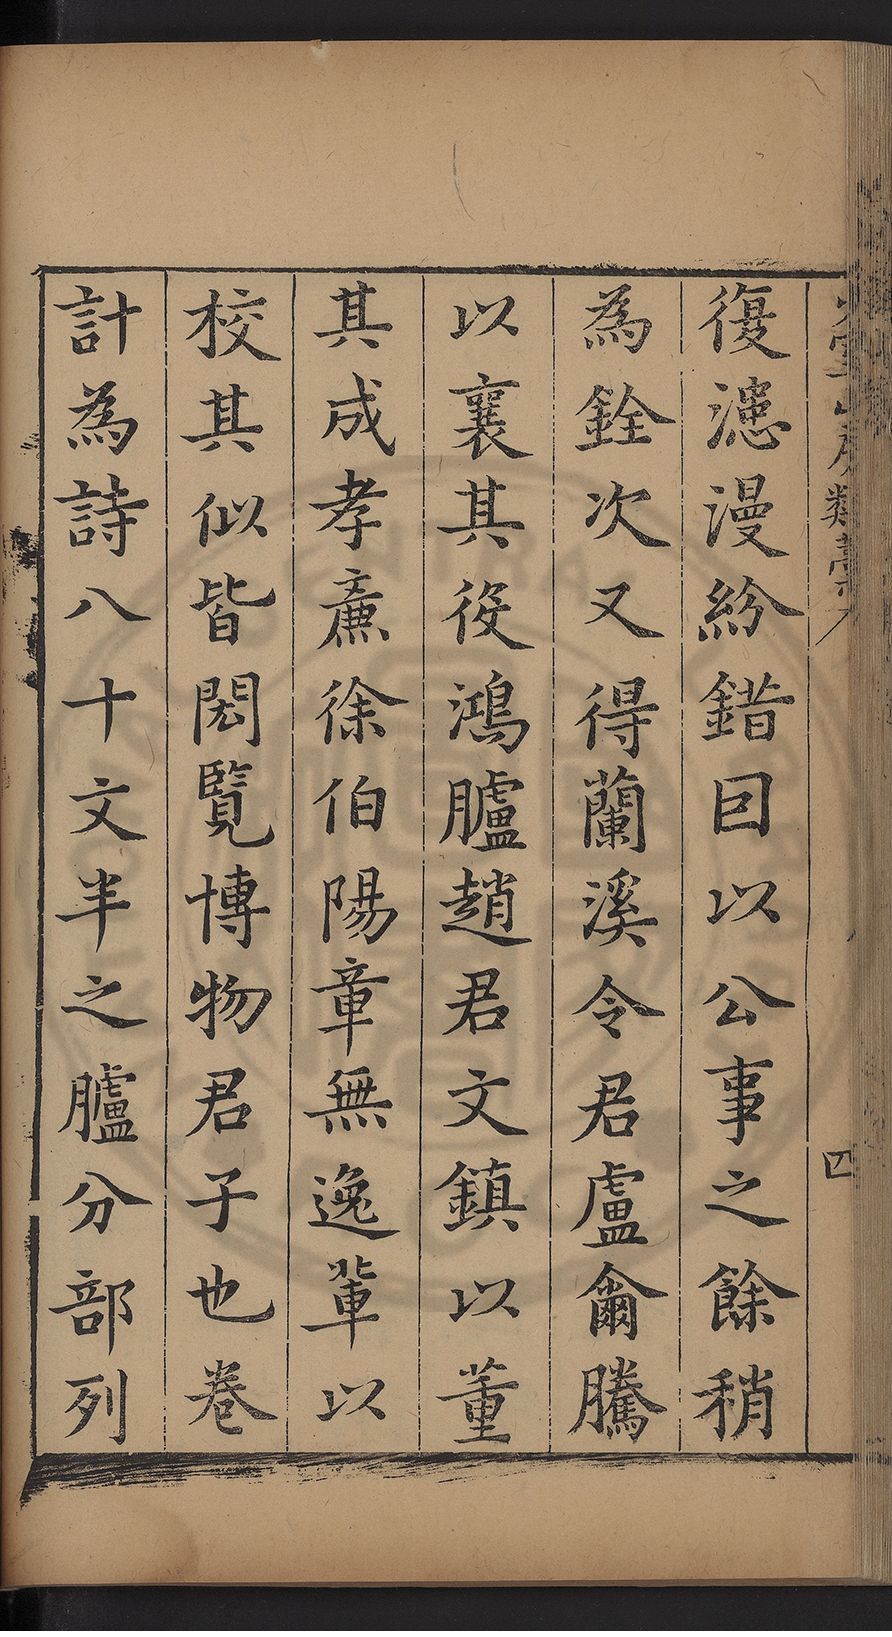 室山房類藁序
四
復漶漫紛錯囙以公事之餘稍
為銓次又得蘭溪令君盧爾騰
以襄其役鴻臚趙君文鎮以董
其成孝廉徐伯陽章無逸輩以
校其似皆閎覽博物君子也卷
計為詩八十文半之臚分部列